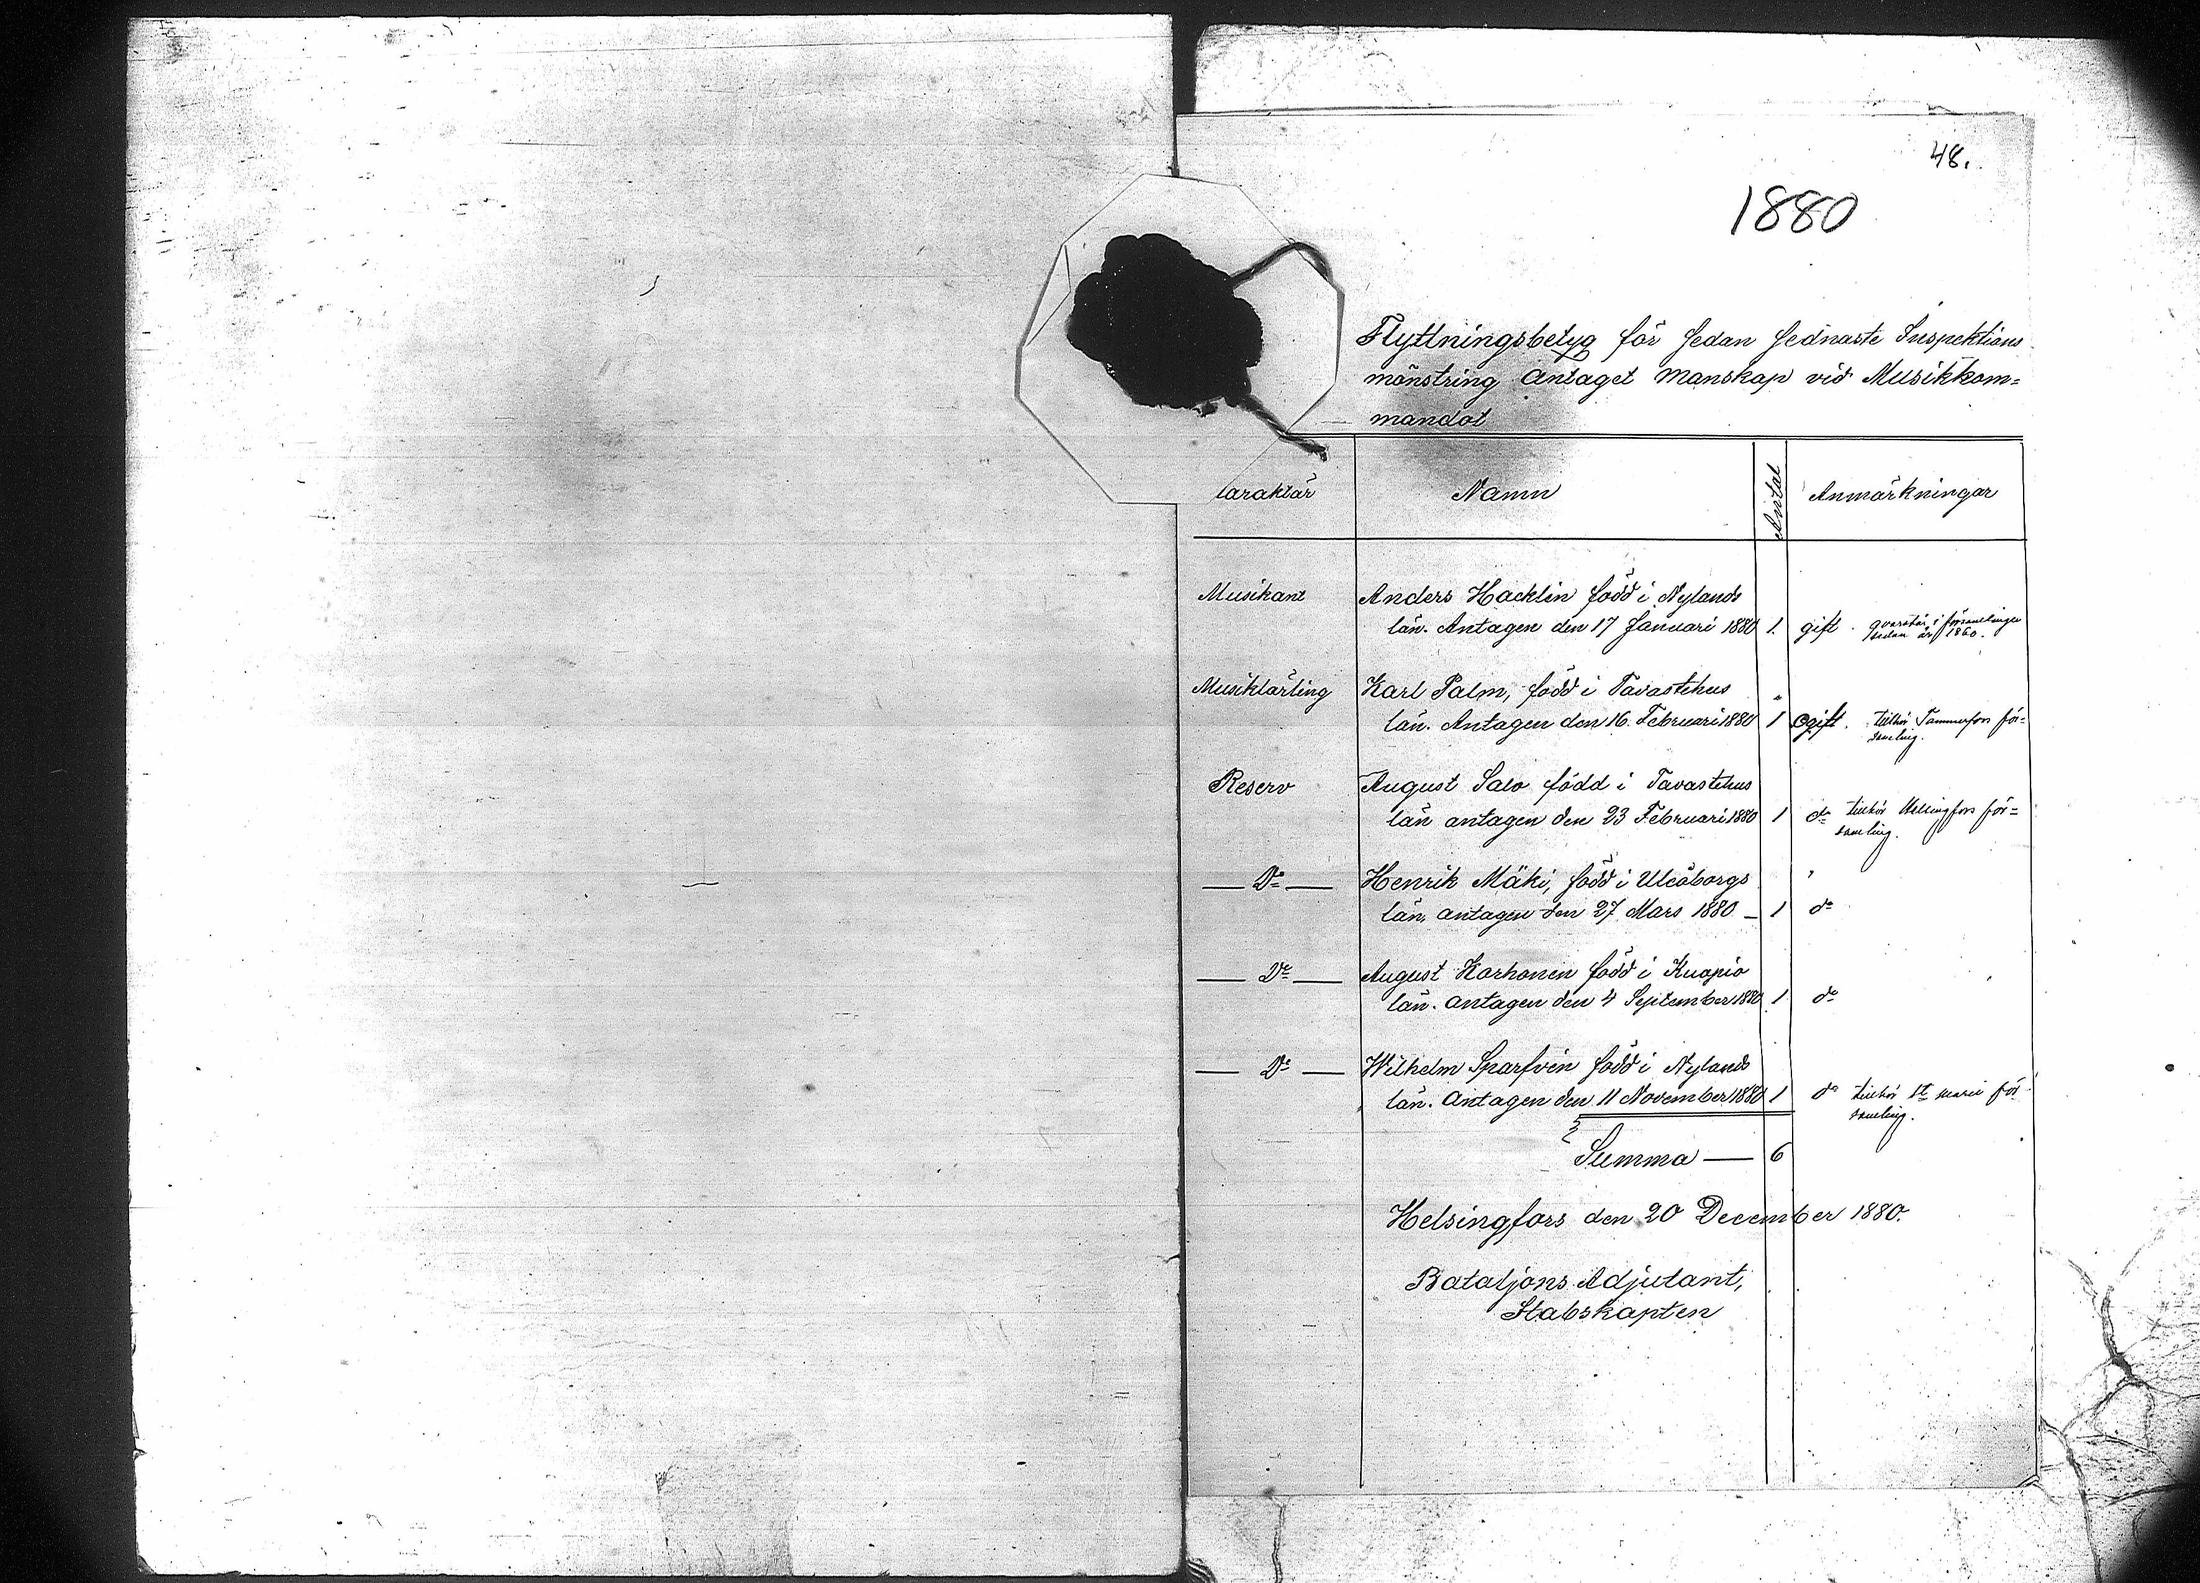 48.
1880
Flyttningsbetyg för sedan sednaste Inspektions
mönstring antaget manskap vid Musikkom=
mandot
karaktär Namn Antal Anmärkningar
Musikant Anders Hacklin född i Nylands
län. Antagen den 17 Januari 1880 1. gift. qvarstår i församlingen
sedan år 1860.
Musiklärling Karl Palm, född i Tavastehus
län. Antagen den 16 Februari 1880 1 ogift. tillhör Tammerfors för=
samling.
Reserv August Salo född i Tavastehus
län antagen den 23 Februari 1880 1 do tillhör Helsingfors för=
samling.
— Do — Henrik Mäki, född i Uleåborgs
län, antagen den 27 Mars 1880 — 1 do
— Do — August Korhonen född i Kuopio
län. antagen den 4 September 1880 1 do
— Do — Wilhelm Sparfvin född i Nylands
län. Antagen den 11 November 1880 1 do tillhör St marie för
samling.
Summa — 6
Helsingfors den 20 December 1880.
Bataljons Adjutant,
Stabskapten